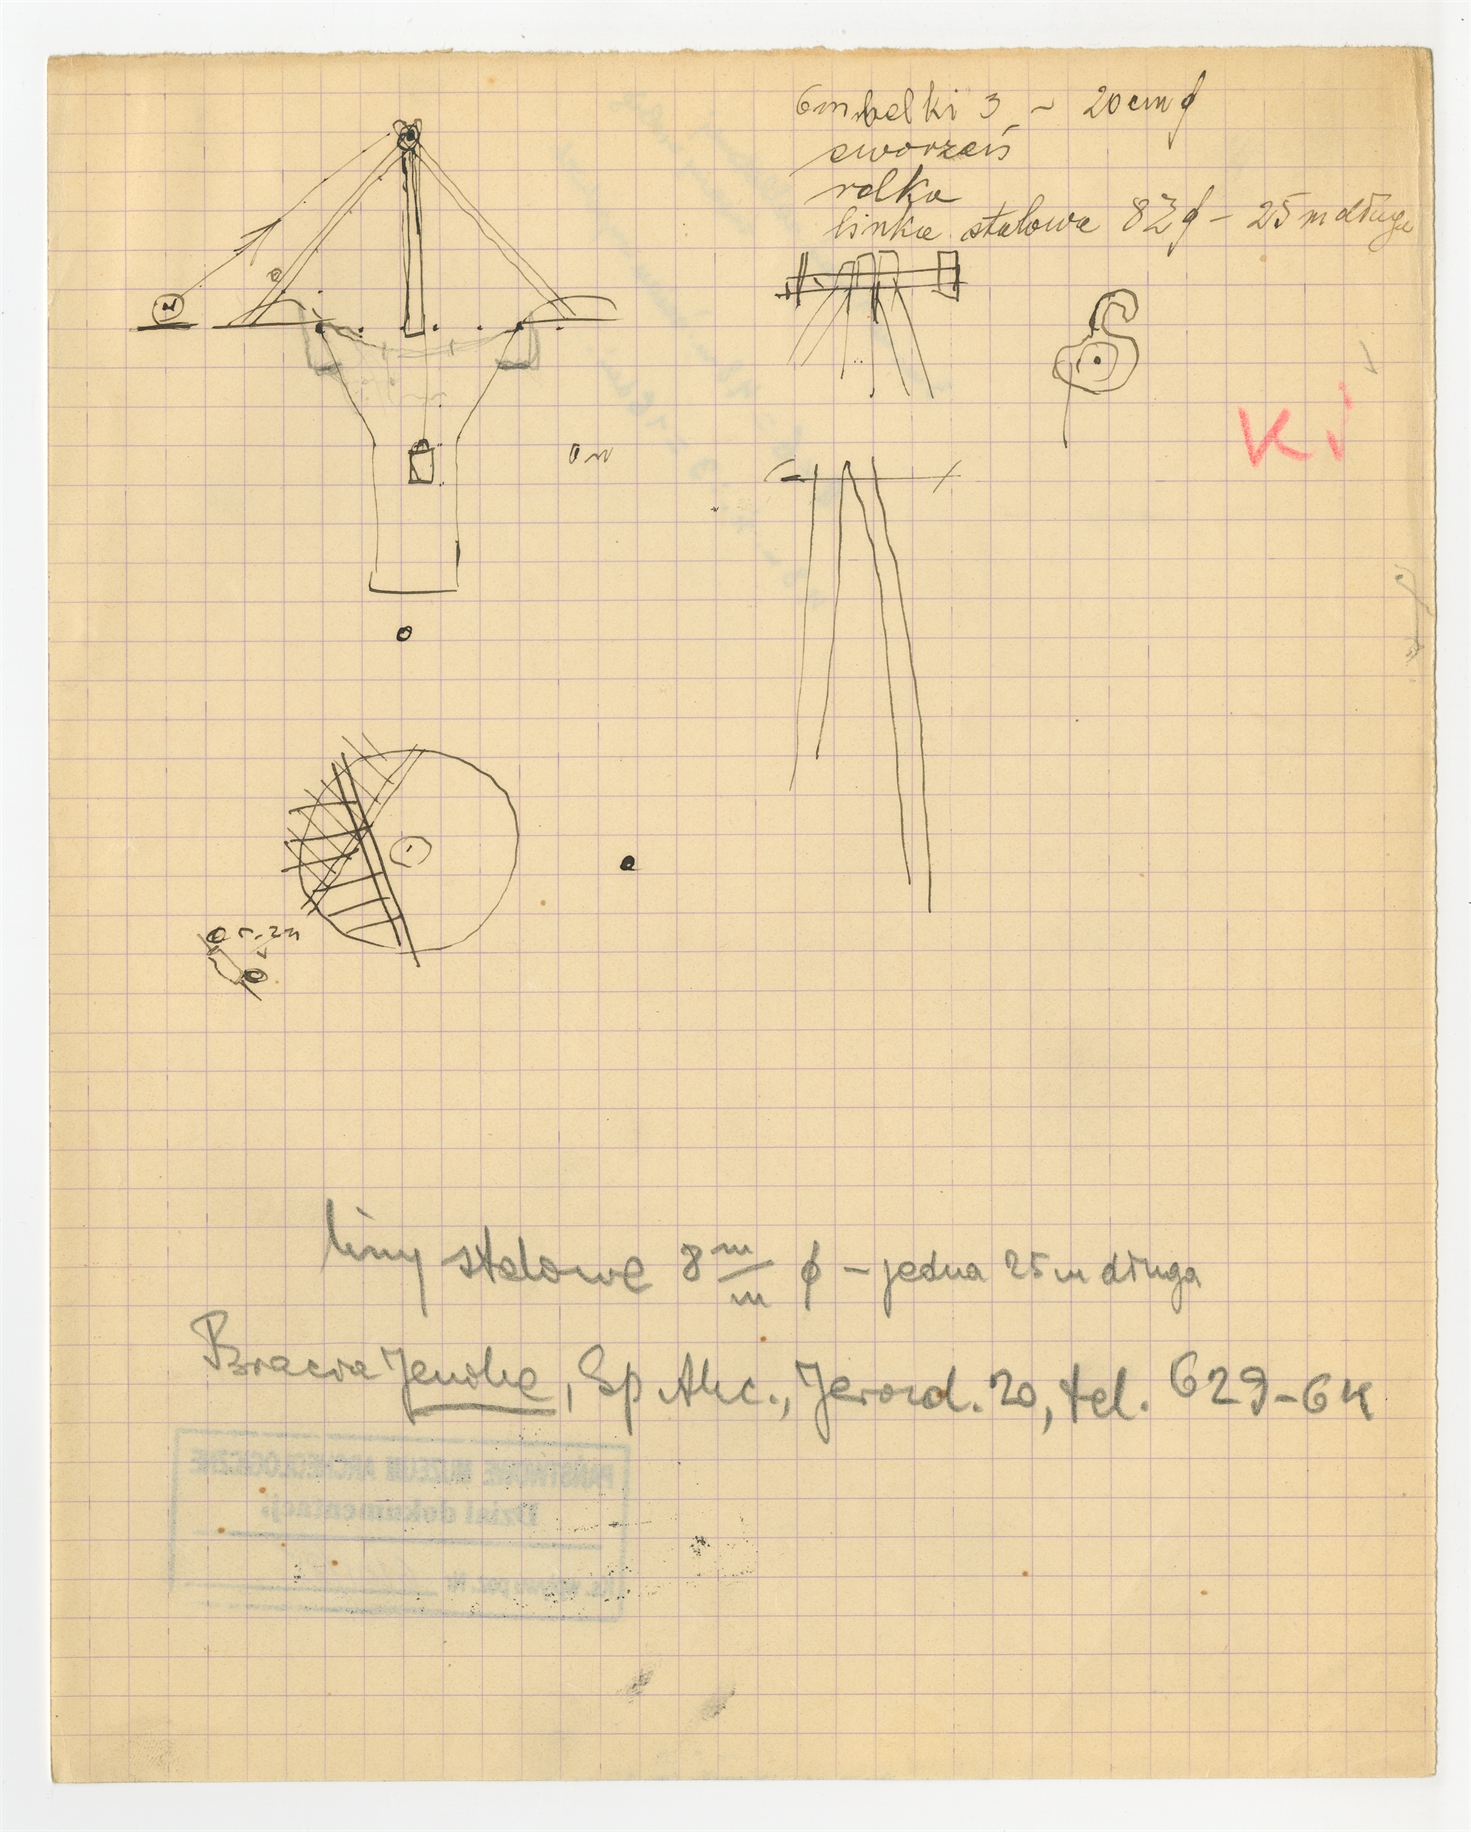 6m belki 3 - 20 cm ϕ
sworzeń
rolka
linka stalowa 8 ϕ - 25 m długa
Ki
liny stalowe 8 m/m ϕ - jedna 25 m długa
Bracia Jenike, Sp. Akc., Jerozol. 20, tel. 629-64
PAŃSTWOWE MUZEUM ARCHEOLOGICZNE
Dział dokumentacji